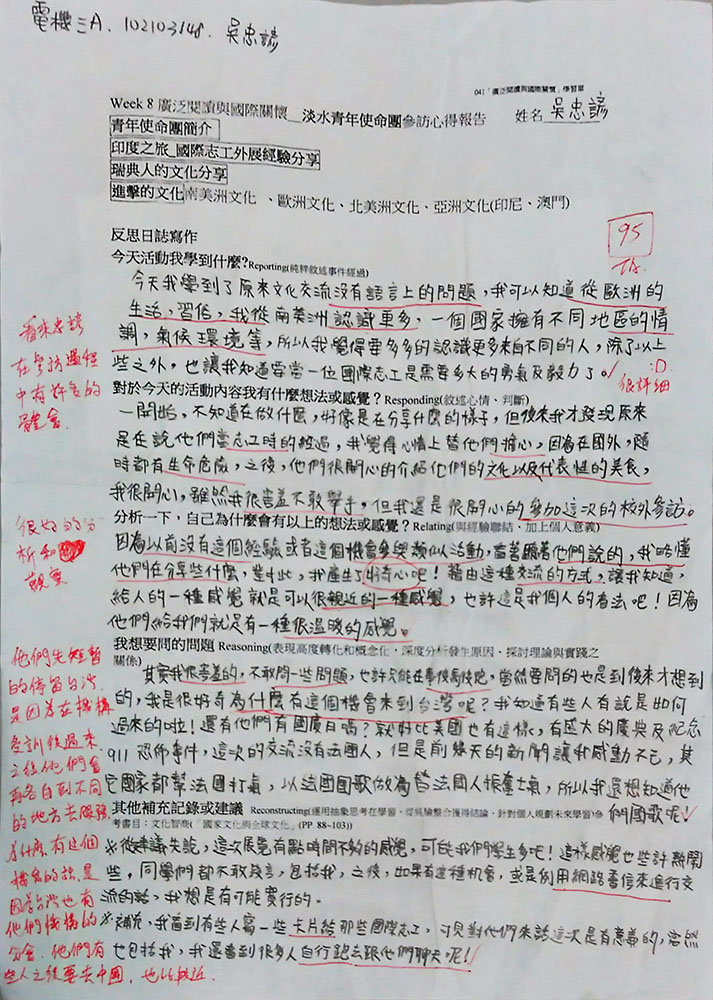 電機三A. 102103148. 吳忠諺
041「廣泛閱讀與國際關懷」學習單
Week 8 廣泛閱讀與國際關懷__淡水青年使命團參訪心得報告 姓名 吳忠諺
青年使命團簡介
印度之旅_國際志工外展經驗分享
瑞典人的文化分享
進擊的文化南美洲文化 、歐洲文化、北美洲文化、亞洲文化(印尼、澳門)
95
反思日誌寫作
今天活動我學到什麼?Reporting(純粹敘述事件經過)
今天我學到了原來文化交流沒有語言上的問題，我可以知道從歐洲的
生活，習俗，我從南美洲認識更多，一個國家擁有不同地區的情
調，氣候環境等，所以我覺得要多多的認識更多來自不同的人，除了以上
些之外，也讓我知道當一位國際志工是需要多大的勇氣及毅力了。
:D
很詳細
看來忠諺
在參訪過程
中有許多的
體會.
對於今天的活動內容我有什麼想法或感覺？Responding(敘述心情、判斷)
一開始，不知道在做什麼，好像是在分享什麼的樣子，但後來我才發現原來
是在說他們當志工時的經過，我覺得心情上替他們擔心，因為在國外，隨
時都有生命危險，之後，他們很開心的介紹他們的文化以及代表性的美食，
我很開心，雖然我很害羞不敢舉手，但我還是很開心的參加這次的校外參訪。
很好的分
析和
觀察
分析一下，自己為什麼會有以上的想法或感覺？Relating(與經驗聯結、加上個人意義)
因為以前沒有這個經驗或者這個機會參與類似活動，當著聽著他們說的，我略懂
他們在分享些什麼，對此，我產生了好奇心吧！藉由這種交流的方式，讓我知道，
給人的一種感覺就是可以很親近的一種感覺，也許這是我個人的看法吧！因為
他們給我們就是有一種很溫暖的感覺。
我想要問的問題 Reasoning(表現高度轉化和概念化，深度分析發生原因、探討理論與實踐之
關係)
其實我很害羞的，不敢問一些問題，也許只能在事後馬後炮，當然要問的也是到後來才想到
的，我是很好奇為什麼有這個機會來到台灣呢？我知道有些人有說是如何
過來的啦！還有他們有國慶日嗎？就好比美國也有這樣，有盛大的慶典及紀念
911恐怖事件，這次的交流沒有法國人，但是前幾天的新聞讓我感動不已，其
它國家都幫法國打氣，以法國國歌做為替法國人振奮士氣，所以我還想知道他
們國歌呢
他們先短暫
的停留台灣
是因為在機構
受訓後過來，
之後他們會
再各自到不同
的地方去服務.
為什麼有這個
機會的話，是
因為台灣也有
他們機構的
分會，他們有
些人之後要去中國，也比較近.
其他補充記錄或建議 Reconstructing(運用抽象思考在學習，從經驗整合獲得結論，針對個人規劃未來學習)參
考書目：文化智商(「國家文化與全球文化」(PP 88~103))
※從建議先說，這次展覽有點時間不夠的感覺，可能我們學生多吧！這樣感覺也些許鬆開
些，同學們都不敢發言，包括我，之後，如果有這種機會，或是利用網路書信來進行交
流的話，我想是有可能實行的。
※補充，我看到有些人寫一些卡片給那些國際志工，可見對他們來說這次是有意義的，當然
也包括我，我還看到很多人自行跑去跟他們聊天呢！